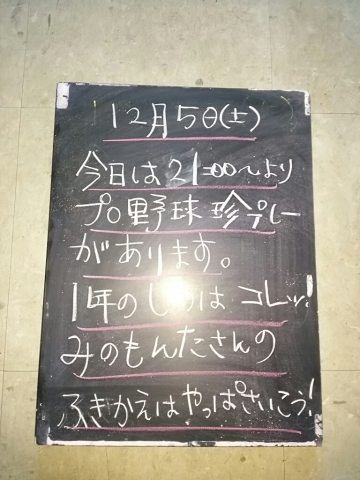 12月5日(土)
今日は21:00〜より
プロ野球珍プレー
があります。
1年のしめはコレッ!
みのもんたさんの
ふきかえはやっぱさいこう!